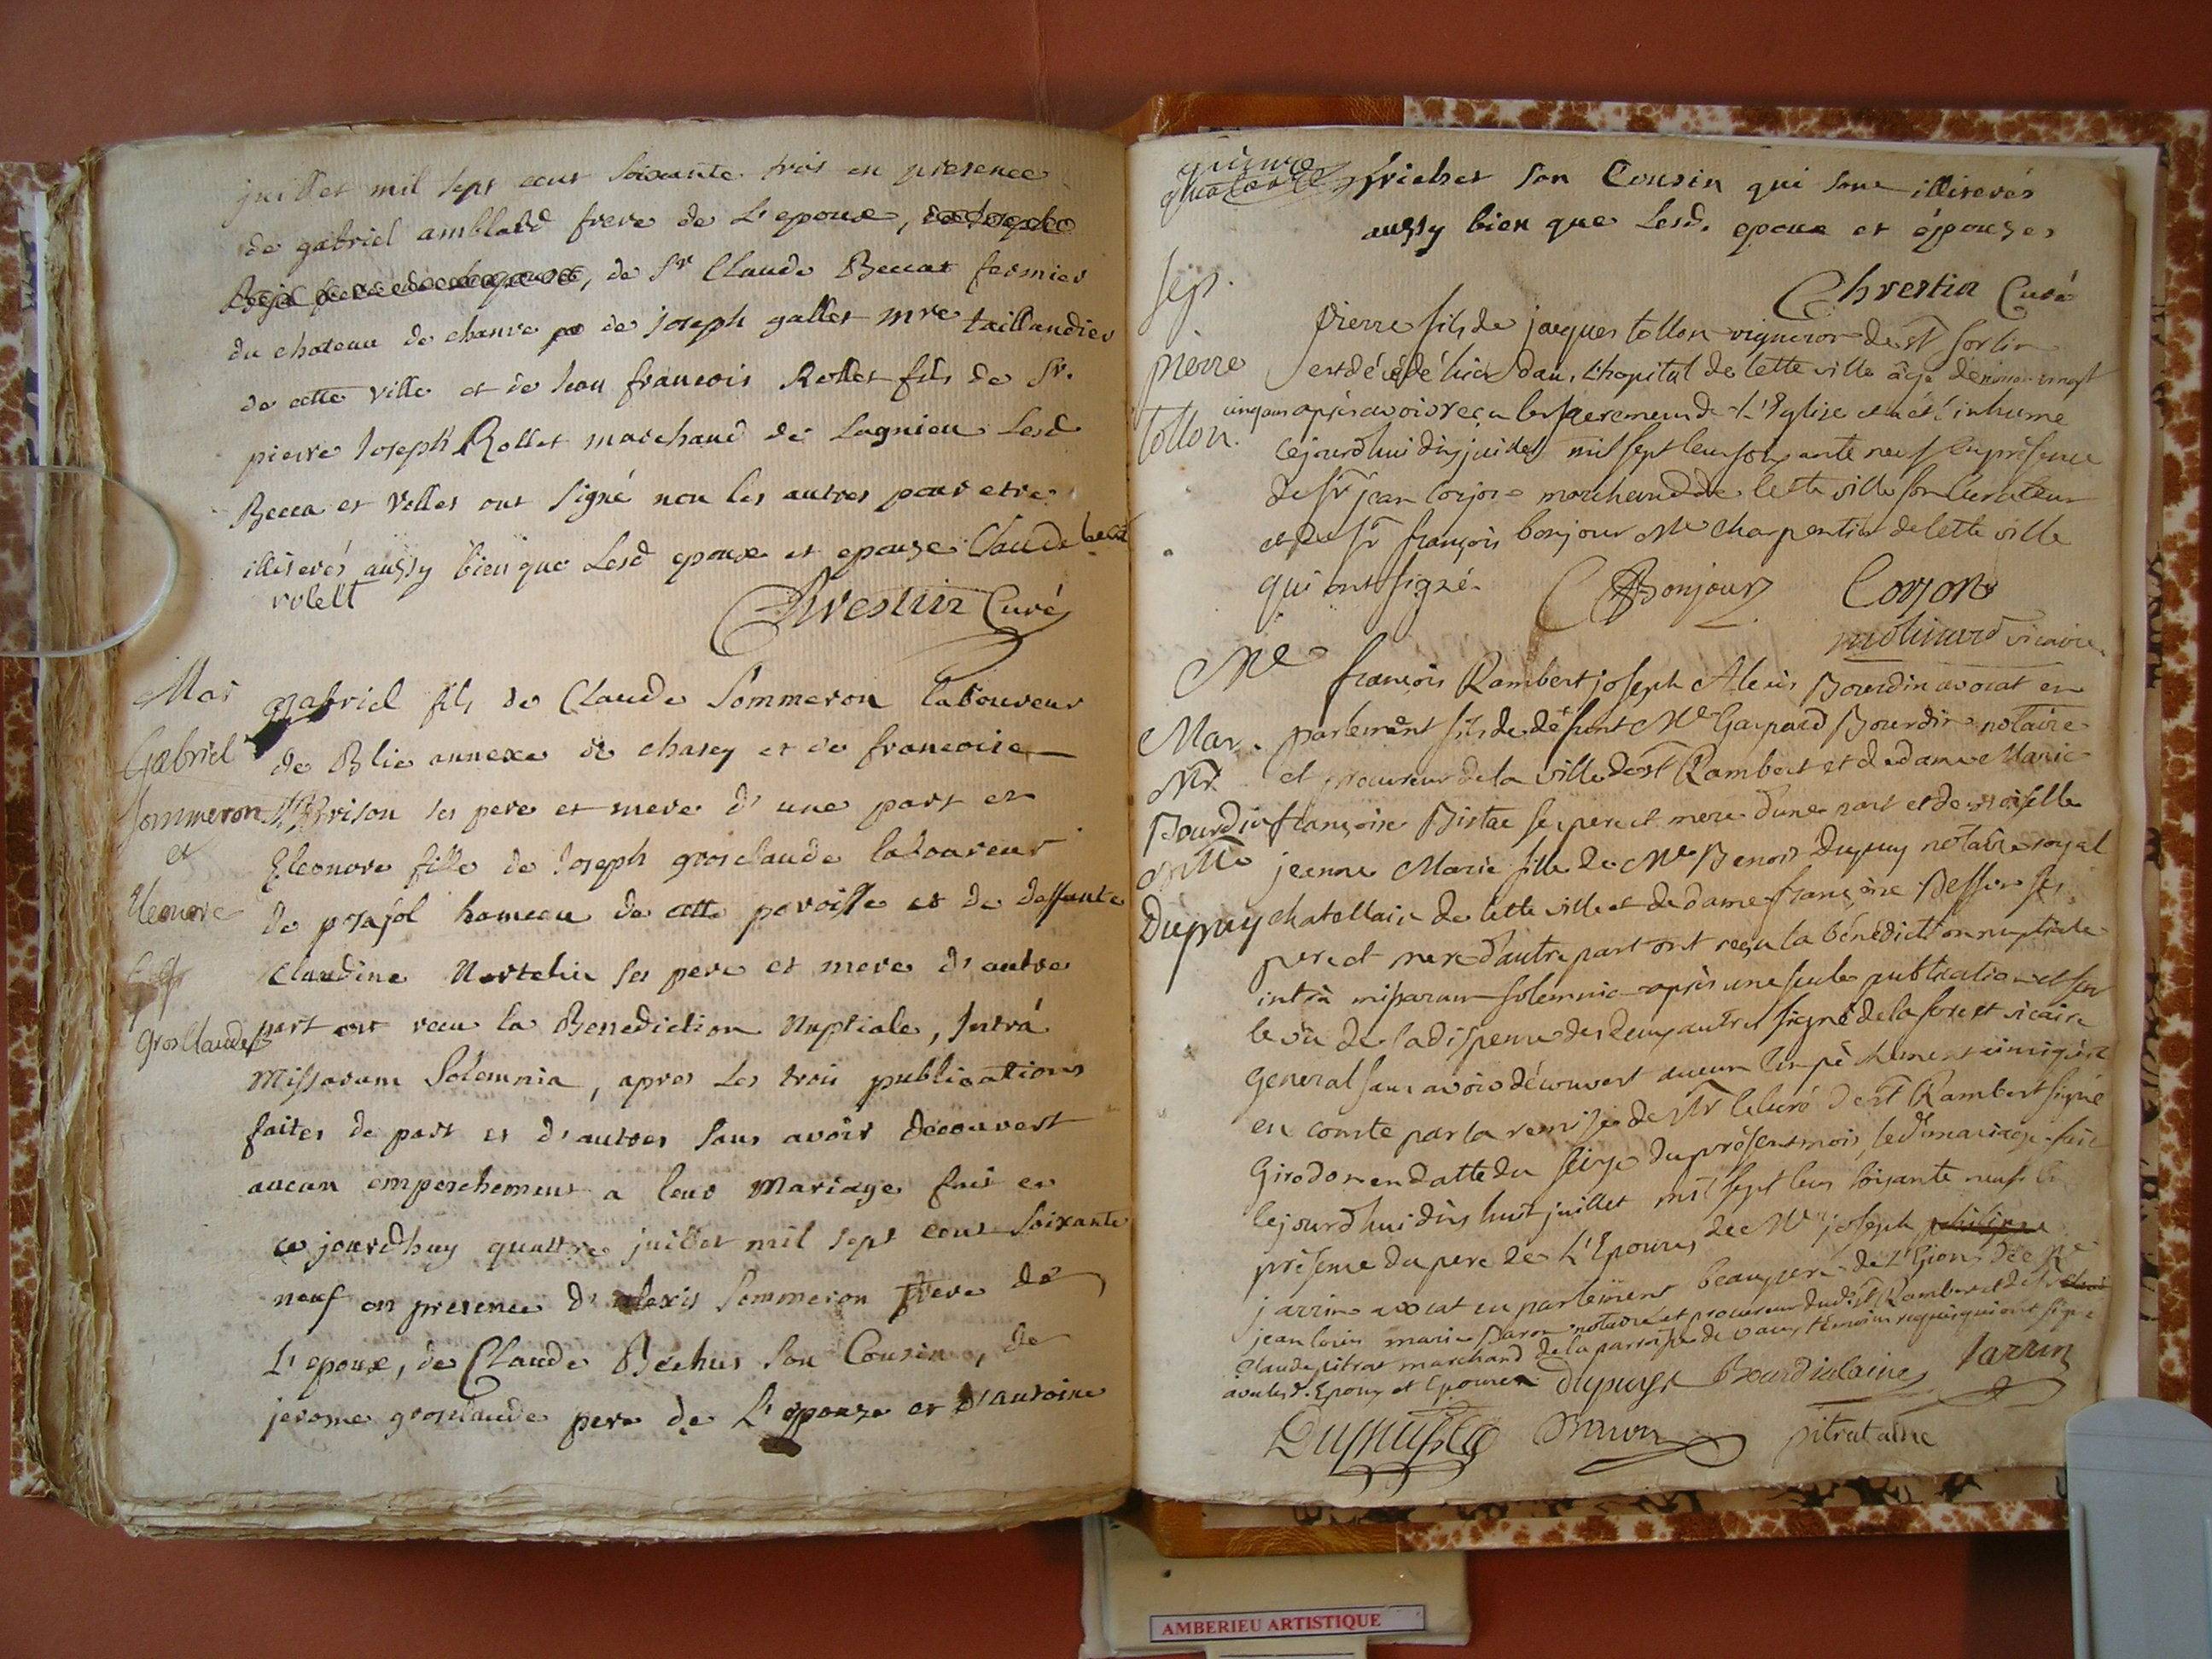 juillet mil sept cent soixante trois en presence
de gabriel amblard frere de L'epoux,
, de Sr Claude Beccat fermier
du chateau de chanve de joseph gallet mre taillandier
de cette ville et de jean francois Rollet fils de Sr.
pierre joseph Rollet marchand de Lagnieu Lesd
Becca et Rollet ont signé non les autres pour etre
illiterés aussy bien que Lesd epoux et epouse Claude beca
rolett Chrestin Curé
Mar
Gabriel
sommeron
et
Eleonore
Grosclaude
gabriel fils de Claude Sommeron laboureur
de Blie annexe de chasey et de francoise
Brison ses pere et mere d'une part et
Eleonore fille de Joseph grosclaude laboureur
de posafol hameau de cette paroisse et de deffunte
Claudine ses pere et mere d'autre
part ont recu la Benediction Nuptiale, Intrá
Missarum Solemnia, apres Les trois publications
faites de part et d'autres sans avoir decouvert
aucun empeschement a leur Mariage fait en
ce jourdhuy quattre juillet mil sept cent soixante
neuf en presence d'alexis Sommeron frere de
L'epoux, de Claude Bechus Son Cousin, de
jerome grosclaude pere de L'epouse et d'antoine
quinze
quatorze
frichet son Cousin qui sont illiterés
aussy bien que Lesd. epoux et épouses
Chrestin Curé
sep.
pierre
tollon.
pierre fils de jacques tollon vigneron de St Sorlin
est décédé hier dans L'hopital de cette ville âgé de vingt
cinq ans après avoir reçu les sacremens de L'Eglise et a été inhumé
cejourdhui dix juillet mil sept cent soixante neuf en présence
de Sr jean Corjon marchand de cette ville son curateur
et de Sr françois bonjour Me Charpentier de cette ville
qui ont signé. Bonjour Corjon
molinard vicaire
Mar.
Mr.
Bourdin
et Mlle
Dupuy
Me françois Rambert joseph Alexis Bourdin avocat en
parlement fils de défunt Me Gaspard Bourdin notaire
et procureur de la ville de St Rambert et de dame Marie
françoise Bistac ses pere et mere d'une part et demoiselle
jeanne Marie fille de Me Benoit Dupuy notaire royal
chatellain de cette ville et de dame françoise Besson ses
pere et mere d'autre part ont reçu la bénédiction nuptiale
intrà missarum solemnia après une seule publication et sur
le vû de la dispense des deux autres signé de la forest vicaire
general sans avoir découvert aucun Empèchement
en conste par la remise de Mr le curé de St Rambert signé
Girodon en datte du seize du présent mois, led. mariage fait
cejourdhui dix huit juillet mil sept cens soixante neuf en
présence du pere de L'Epouse, de Me joseph philippe
jarrin avocat en parlement beaupere de L'Epoux, de Me
jean louis marie Baron notaire et procureur dudit St Rambert et de Sr
Claude pitrat marchand de la parroisse de vaux témoins requis qui ont signé
avec lesd. Epoux et Epouse. dupuys Bourdin laine Jarrin
Dupuis Baron pitrat ainé
AMBERIEU ARTISTIQUE